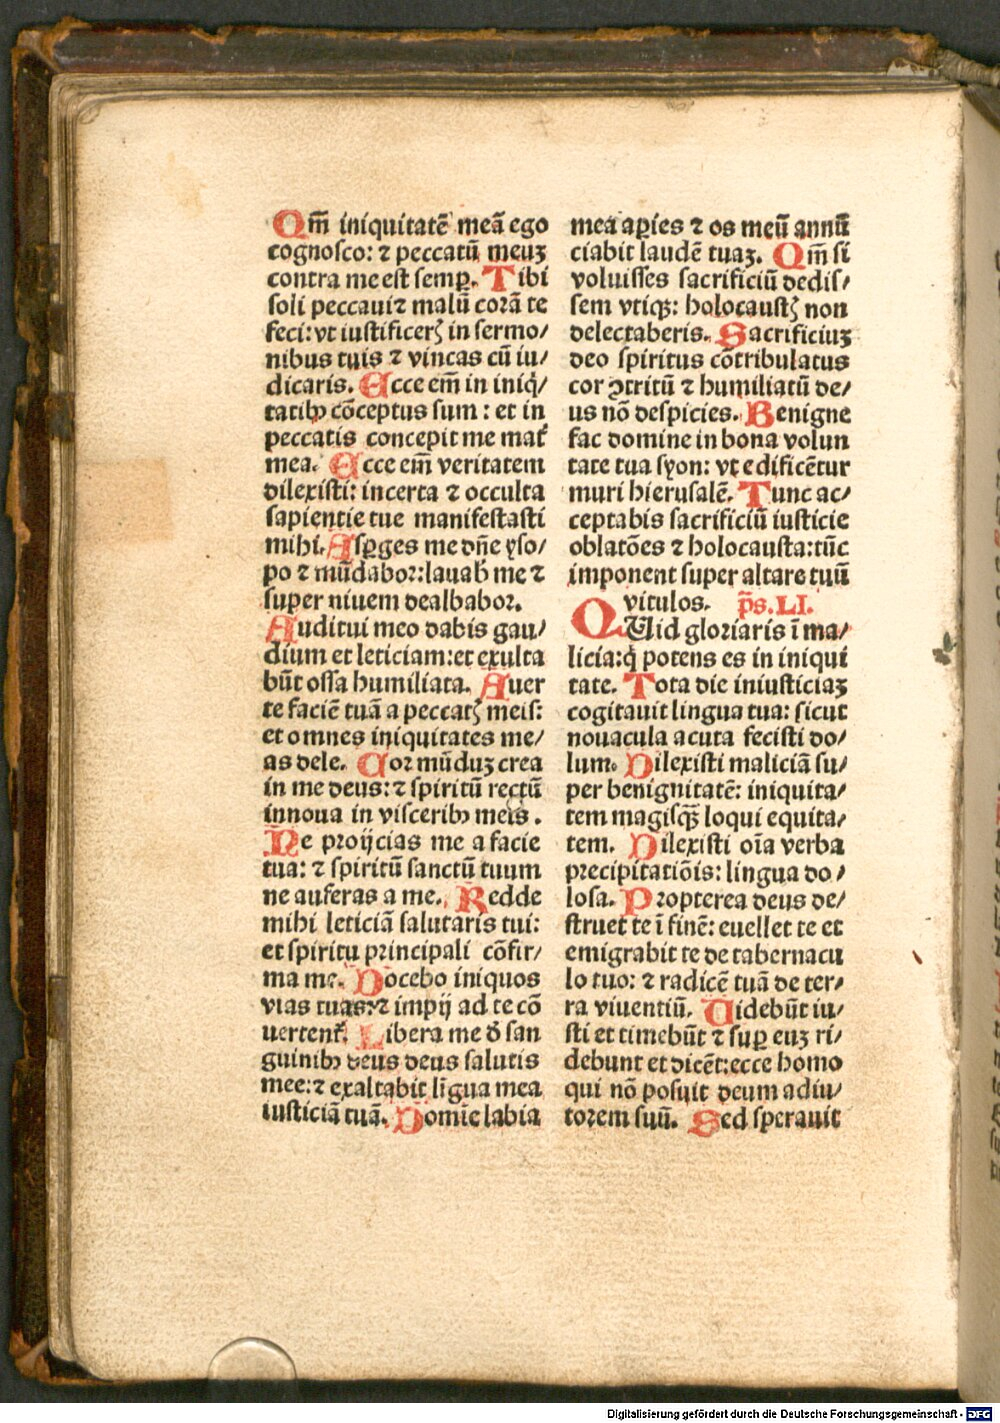 Qm̄ iniquitatē meā ego
cognosco: ⁊ peccatū meuꝫ
contra me est semꝑ. Tibi
soli peccaui⁊ malū corā te
feci: vt iustificerꝭ in sermo/
nibus tuis ⁊ vincas cū iu/
dicaris. Ecce em̄ in iniq̇/
tatibꝰ cōceptus sum: et in
peccatis concepit me mat̃
mea. Ecce em̄ veritatem
dilexisti: incerta ⁊ occulta
sapientie tue manifestasti
mihi. Asꝑges me dn̄e yso/
po ⁊ mūdabor: lauab̃ me ⁊
super niuem dealbabor.
Auditui meo dabis gau/
dium et leticiam: et exulta
būt ossa humiliata. Auer
te faciē tuā a peccatꝭ meis:
et omnes iniquitates me/
as dele. Cor mūduꝫ crea
in me deus: ⁊ spiritū rectū
innoua in visceribꝰ meis.
Ne proijcias me a facie
tua: ⁊ spiritū sanctū tuum
ne auferas a me. Redde
mihi leticiā salutaris tui:
et spiritu principali cōfir/
ma me. Docebo iniquos
vias tuas: ⁊ impij ad te cō
uertent̃. Libera me d̄ san
guinibꝰ deus deus salutis
mee: ⁊ exaltabit līgua mea
iusticiā tuā. Domīe labia
mea aꝑies ⁊ os meū annū
ciabit laudē tuaꝫ. Qm̄ si
voluisses sacrificiū dedis/
sem vtiqꝫ: holocaustꝭ non
delectaberis. Sacrificiuꝫ
deo spiritus cōtribulatus
cor ꝯtritū ⁊ humiliatū de/
us nō despicies. Benigne
fac domine in bona volun
tate tua syon: vt edificētur
muri hierusalē. Tunc ac/
ceptabis sacrificiū iusticie
oblatōes ⁊ holocausta: tūc
imponent super altare tuū
vitulos. p̄s. LI.
QUid gloriaris ī ma/
licia: q̇ potens es in iniqui
tate. Tota die iniusticiaꝫ
cogitauit lingua tua: sicut
nouacula acuta fecisti do/
lum. Dilexisti maliciā su/
per benignitatē: iniquita/
tem magisqꝫ̄ loqui equita/
tem. Dilexisti oīa verba
precipitatiōis: lingua do/
losa. Propterea deus de/
struet te ī finē: euellet te et
emigrabit te de tabernacu
lo tuo: ⁊ radicē tuā de ter/
ra viuentiū. Uidebūt iu/
sti et timebūt ⁊ suꝑ euꝫ ri/
debunt et dicēt: ecce homo
qui nō posuit deum adiu/
torem suū. Sed sperauit
Digitalisierung gefördert durch die Deutsche Forschungsgemeinschaft - DFG